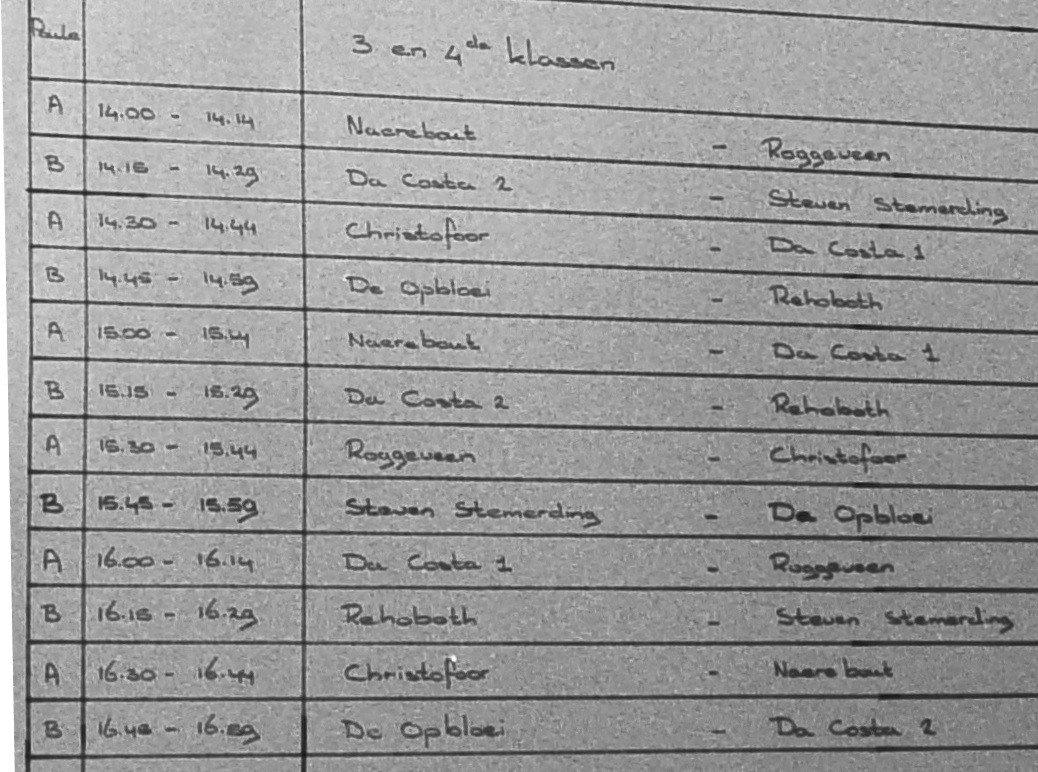 Poule 3 en 4de klassen
A 14.00 - 14.14 Naerebout - Roggeveen
B 14.15 - 14.29 Da Costa 2 - Steven Stemerding
A 14.30 - 14.44 Christofoor - Da Costa 1
B 14.45 - 14.59 De Opbloei - Rehoboth
A 15.00 - 15.14 Naerebout - Da Costa 1
B 15.15 - 15.29 Da Costa 2 - Rehoboth
A 15.30 - 15.44 Roggeveen - Christofoor
B 15.45 - 15.59 Steven Stemerding - De Opbloei
A 16.00 - 16.14 Da Costa 1 - Roggeveen
B 16.15 - 16.29 Rehoboth - Steven Stemerding
A 16.30 - 16.44 Christofoor - Naerebout
B 16.45 - 16.59 De Opbloei - Da Costa 2